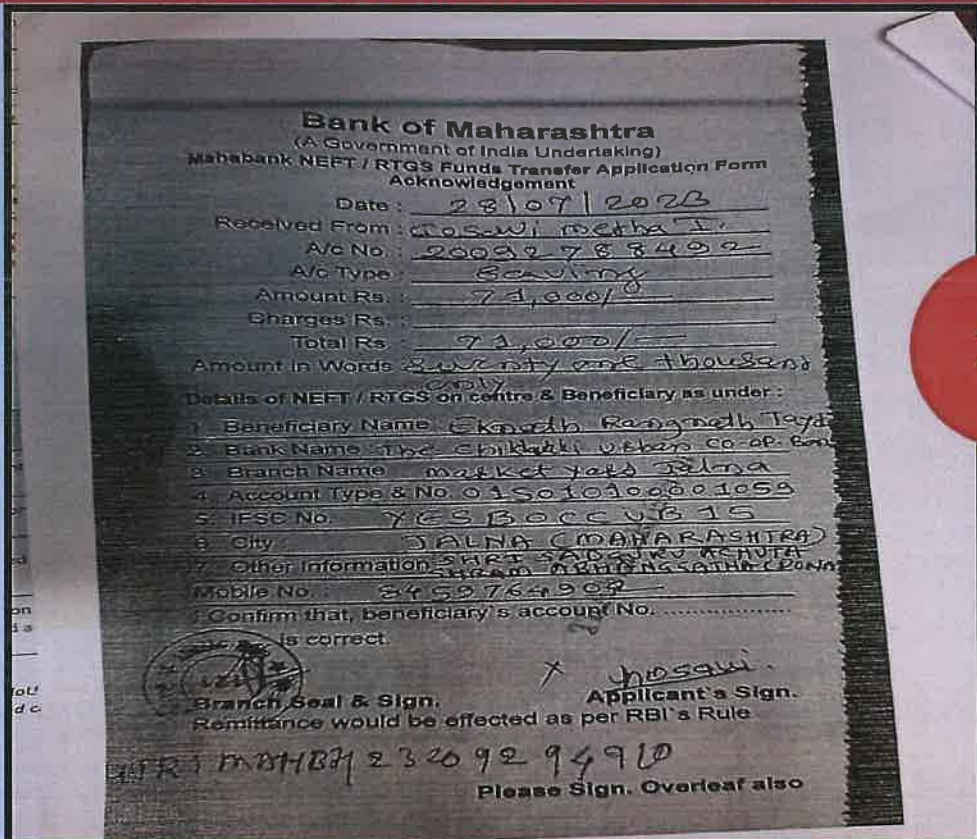 Bank of Maharashtra
(A Government of India Undertaking)
Mahabank NEFT / RTGS Funds Transfer Application Form
Acknowledgement
Date : 28/07/2023
Received From : Gosawi metha I.
A/c No. : 20092788492
A/c Type : Seaving
Amount Rs. : 71,000/-
Charges Rs. :
Total Rs : 71,000/-
Amount in Words : Suventy one thousand
only
Details of NEFT / RTGS on centre & Beneficiary as under :
1. Beneficiary Name : Eknath Rangnath Tayd
2. Bank Name : The Chikhali Urban CO OP. Ban
3. Branch Name market yard Jalna
4. Account Type & No. 015010100001059
5. IFSC No. YESB0CCUB15
6. City : JALNA (MAHARASHTRA)
7. Other Information SHRI SADGURU ACHUTA
SHRAM
Mobile No. : 8459764902
I Confirm that, beneficiary's account No. ................
is correct.
X
Branch Seal & Sign. Applicant's Sign.
Remittance would be effected as per RBI's Rule
UTR: MAHBH23209294910
Please Sign. Overleaf also